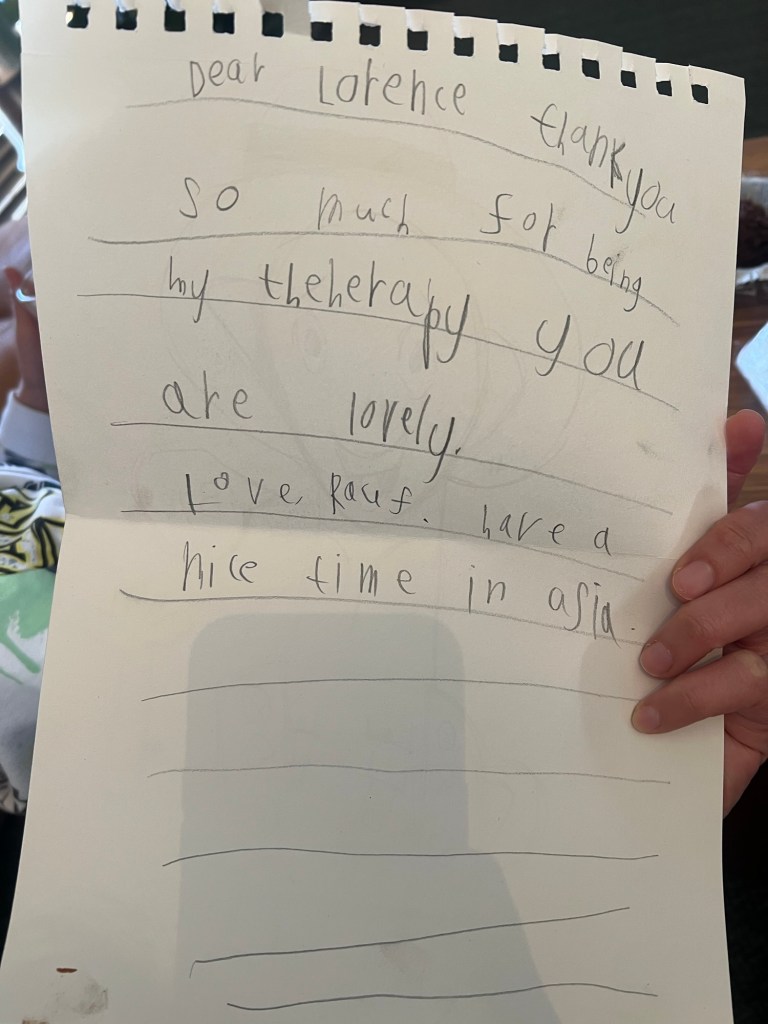 Dear Lorence thankyou
so much for being
my theherapy you
are lovely.
Love Rauf. have a
nice time in asia.